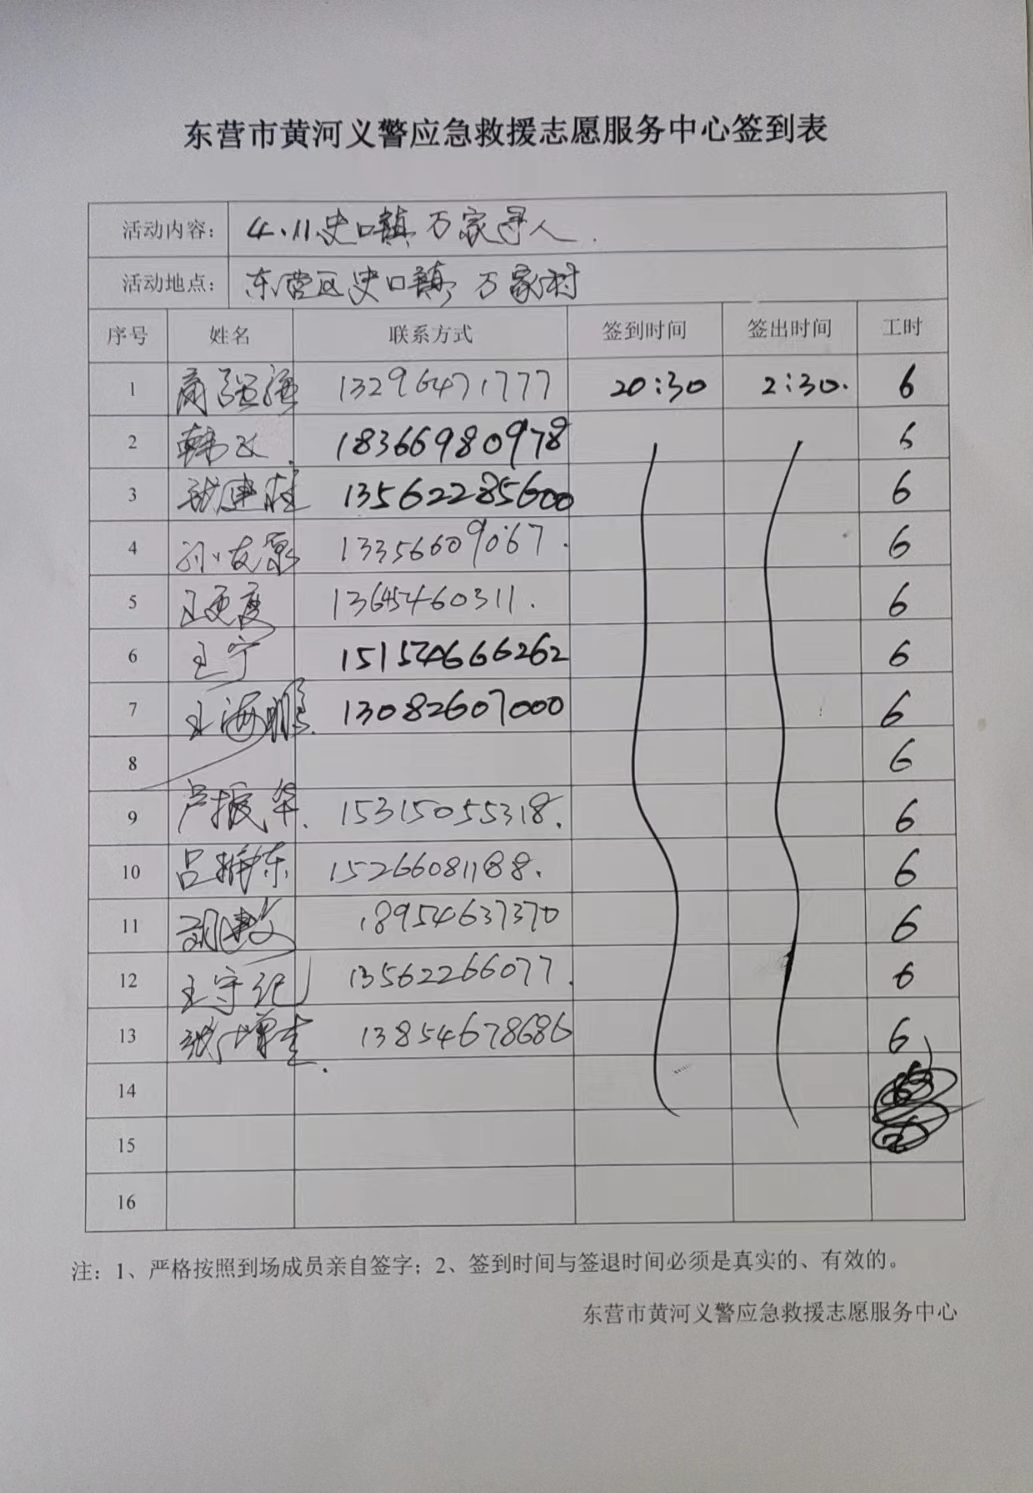 东营市黄河义警应急救援志愿服务中心签到表
活动内容: 4.11史口镇万家寻人.
活动地点: 东营区史口镇万家村
序号 姓名 联系方式 签到时间 签出时间 工时
1 13296471777 20:30 2:30. 6
2 18366980978 6
3 13562285600 6
4 13356609067. 6
5 13645460311. 6
6 王宁 15154666262 6
7 王海鹏 13082607000 6
8 6
9 芦振华. 15315055318. 6
10 15266081188. 6
11 18954637370 6
12 王守纪 13562266077. 6
13 13854678686 6
14
15
16
注：1、严格按照到场成员亲自签字；2、签到时间与签退时间必须是真实的、有效的。
东营市黄河义警应急救援志愿服务中心